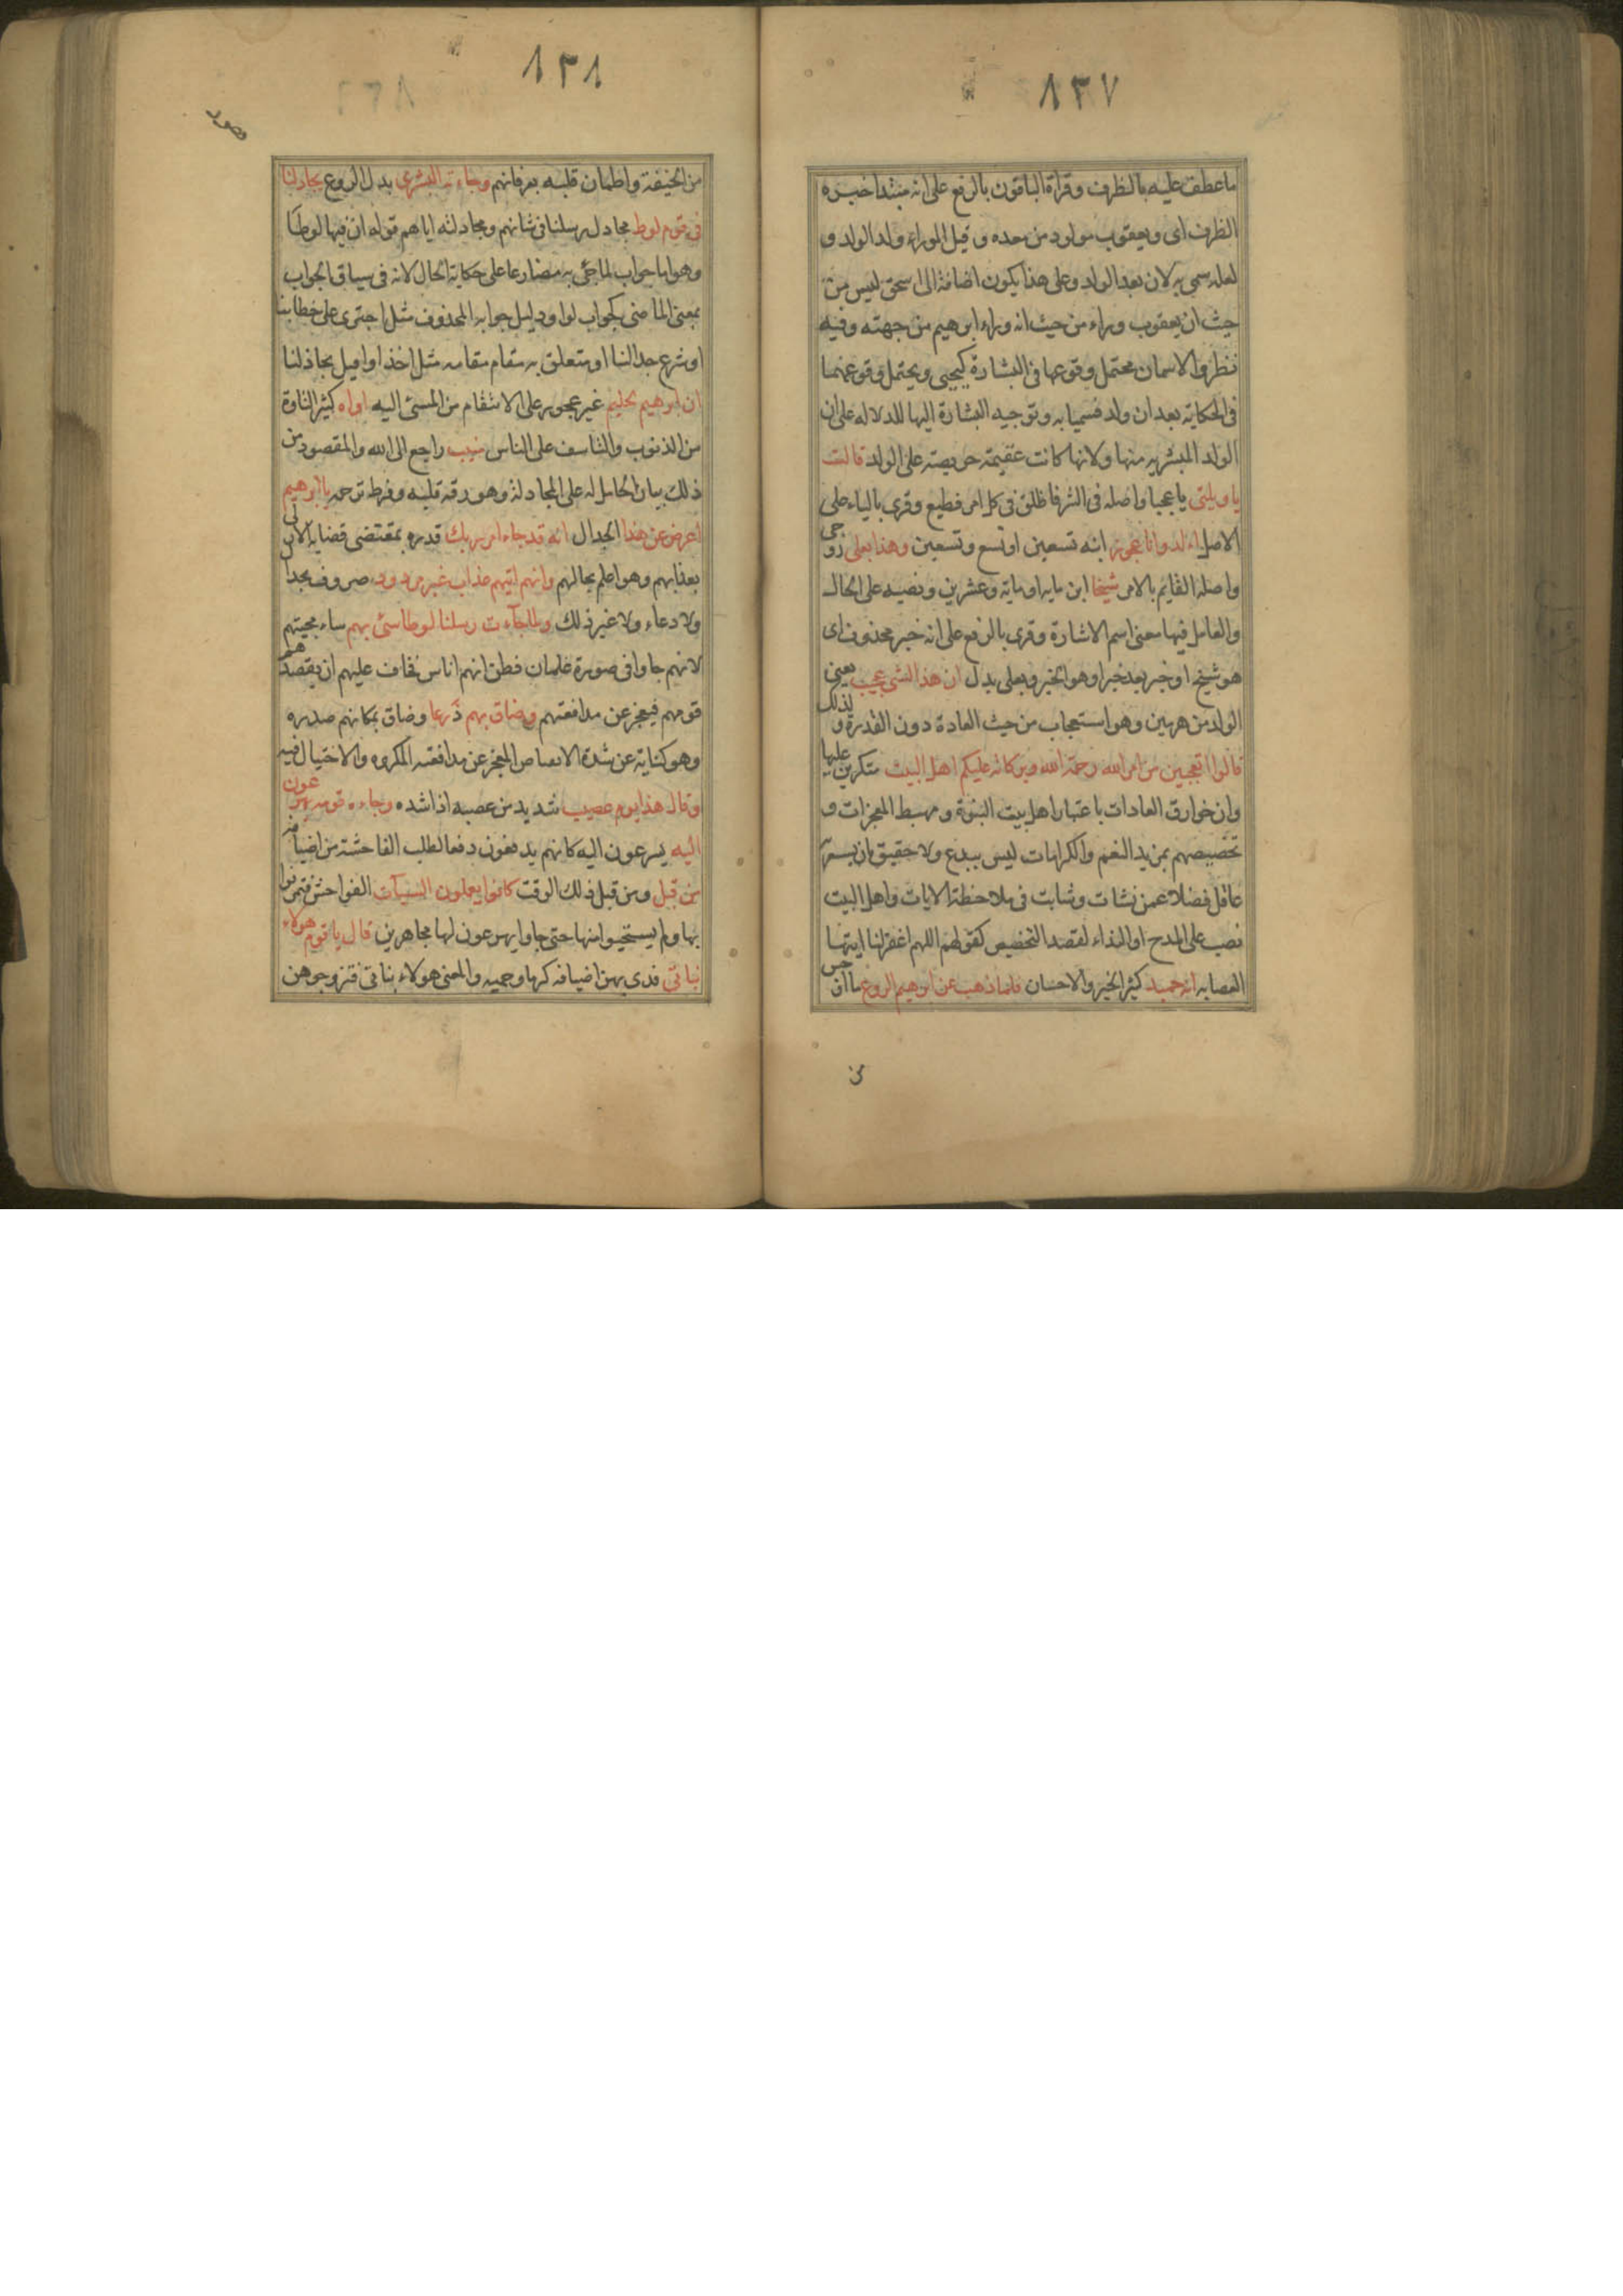 ٨٣٧
ما عطف عليه بالظرف وقراة الباقون بالرفع على انه مبتدا خبره
الظرف اى ويعقوب مولود من بعده وقيل الوراء ولد الولد و
لعله سمى به لان بعد الولد وعلى هذا يكون اضافة الى اسحق ليس من
حيث ان يعقوب وراءه من حيث انه وراء ابرهيم من جهته وفيه
نظر والاسمان محتمل وقوعها فى البشارة كيحيى ويحتمل وقوعهما
فى الحكاية بعد ان ولد فسميا به وتوجيه البشارة اليها للدلاله على ان
الولد المبشر به منها ولانها كانت عقيمة حريصة على الولد قالت
يا ويلتى يا عجبا واصله فى الشر فاطلق فى كل امر فظيع وقرى بالياء على
الاصل ءالد وانا عجوز ابنه تسعين او تسع وتسعين وهذا بعلى زوجى
واصله القايم بالامر شيخا ابن مايه او ماية وعشرين ونصبه على الحال
والعامل فيها معنى اسم الاشارة وقرى بالرفع على انه خبر محذوف اى
هو شيخ او خبر بعد خبر او هو الخبر وبعلى بدل ان هذا لشى عجيب يعنى
الولد من هرمين وهو استعجاب من حيث العادة دون القدرة ولذلك
قالوا اتعجبين من امر الله رحمة الله وبركاته عليكم اهل البيت منكرين عليها
وان خوارق العادات باعتبار اهل بيت النبوة ومهبط المعجزات و
تخصيصهم بمزيد النعم والكرامات ليس ببدع ولا حقيق بان يستغر
عاقل فضلا عمن نشات وشابت فى ملاحظة الايات واهل البيت
نصب على المدح او النداء لقصد التخصيص كقولهم اللهم اغفر لنا ايتها
العصابه انه حميد كثير الخير والاحسان فلما ذهب عن ابرهيم الروع ما اوجس
من
٨٣٨
هود
من الخيفة واطمان قلبه بعرفانهم وجاءته البشرى بدل الروع يجادلنا
فى قوم لوط مجادل رسلنا فى شانهم ومجادلته اياهم قوله ان فيها لوطا
وهو اما جواب لما جئ به مضارعا على حكاية الحال لانه فى سياق الجواب
بمعنى الماضى كجواب لو او دليل جوابه المحذوف مثل اجترى على خطابنا
او شرع جدالنا او متعلق به مقام مقامه مثل اخذ او اقبل يجادلنا
ان ابرهيم لحليم غير عجول على الانتقام من المسئ اليه اواه كثير التاوة
من الذنوب والتاسف على الناس منيب راجع الى الله والمقصود من
ذلك بيان الحامل له على المجادلة وهو رقة قلبه وفرط ترحمه يا ابرهيم
اعرض عن هذا الجدال انه قد جاء امر ربك قدره بمقتضى قضايه الازلى
بعذابهم وهو اعلم بحالهم وانهم اتيهم عذاب غير مردود مصروف بجدال
ولا دعاء ولا غير ذلك ولما جاءت رسلنا لوطا سئ بهم ساء مجيئهم
لانهم جاوا فى صورة غلمان فظن انهم اناس فخاف عليهم ان يقصدهم
قومهم فيعجز عن مدافعتهم وضاق بهم ذرعا وضاق بمكانهم صدره
وهو كناية عن شدة الانقباض للعجز عن مدافعة المكروه والاحتيال فيه
وقال هذا يوم عصيب شديد من عصبه اذا شده وجاءه قومه يهرعون
اليه يسرعون اليه كانهم يدفعون دفعا لطلب الفاحشة من اضيافه
من قبل ومن قبل ذلك الوقت كانوا يعملون السيآت الفواحش فتمرنوا
بها ولم يستحيوا منها حتى جاوا يهرعون لها مجاهرين قال يا قوم هولاء
بناتى فدى بهن اضيافه كرما وحميه والمعنى هولاء بناتى فتزوجوهن